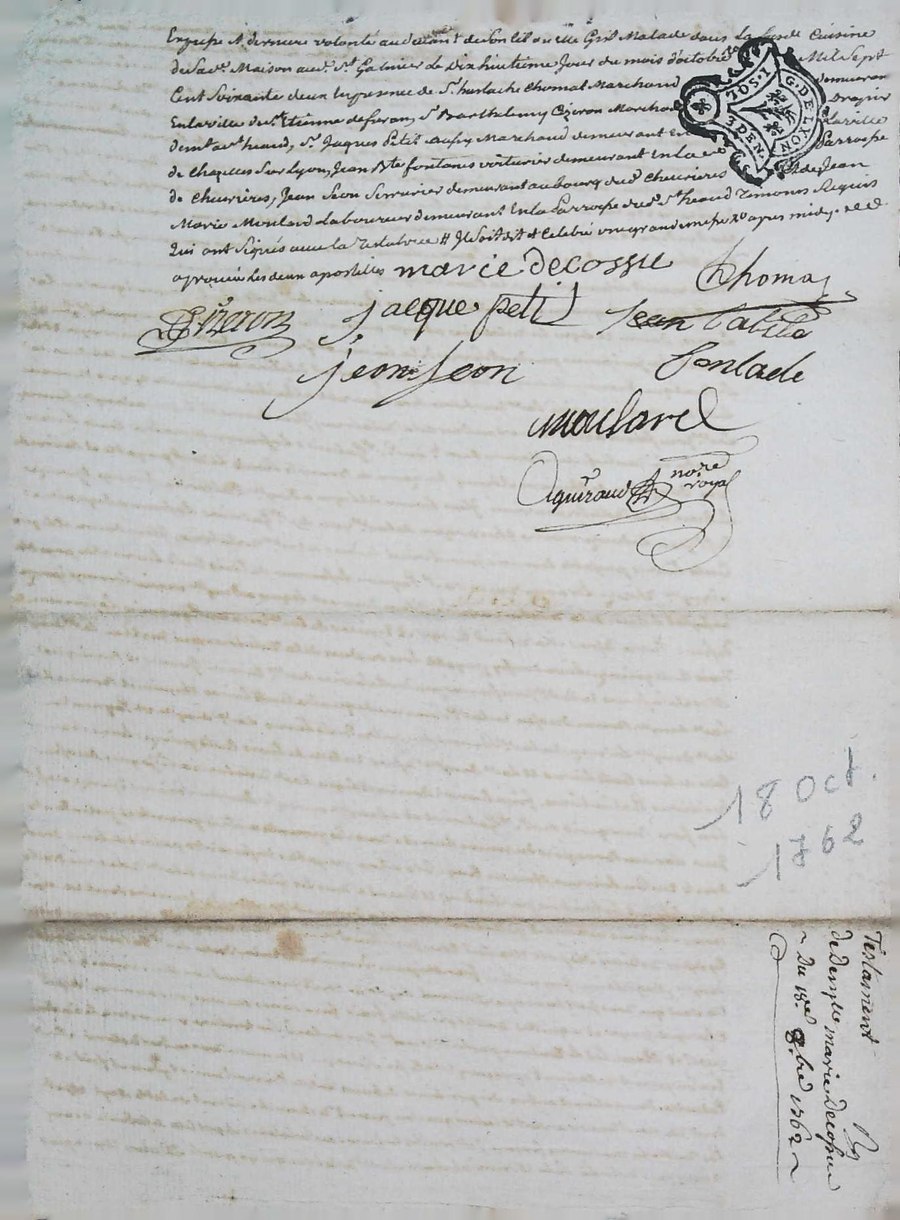 Expresse & derniere volonté audevant de son lit ou elle Git Malade dans la Cuisine
de sad. Maison aud. St Galmier Le Dix huitieme Jour du mois d'octobre Mil Sept
Cent Soixante deux En presence de Sr Eustache Thomas Marchand demeurant
En la ville de St Etienne de furan, Sr Barthelemy Cizeron Marchand Drapier
de Sr Jaques Petit aussy Marchand demeurant en la ville
de Chazelles Sur Lyon, Jean Bte fontanes voiturier demeurant En la Parroisse
de Chevrieres, Jean Seon Serrurier demeurant au bourg dud Chevrieres Et de Jean
Marie Moulard Laboureur demeurant En la Parroisse dud St heaud Temoins Requis
Qui ont Signés avec la Testatrice # Il soit dit & Celebré une grande messe apres midy
aprouvé les deux apostilles marie decossu
Thomas
Cizeron
jacque petit
Jean Batite
jean seon
fontade
moulard
aguiraud nore
royal
G. DE LYON
2. SOLS
8. DEN.
18 Oct.
1762
Testament
de Demlle marie Decossu
Du 18e 8bre 1762